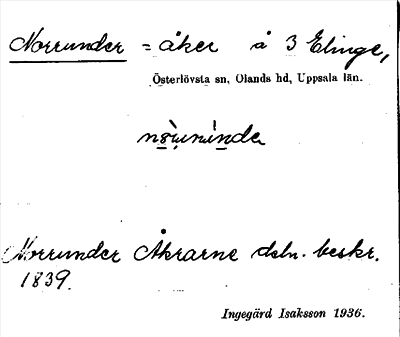 Norrunder = åker å 3 Elinge,
Österlövsta sn, Olands hd, Uppsala län.
Norrunder Åkrarne deln. beskr.
1839.
Ingegärd Isaksson 1936.